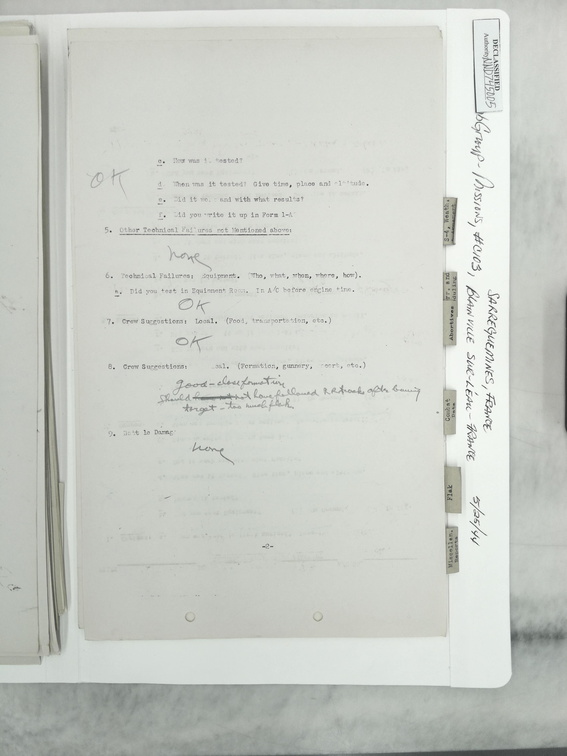 DECLASSIFIED
Authority NND745005
Group - Missions, #C103,
SARREGUEMINES, FRANCE
BLAINVILLE SUR-L'EAU - FRANCE
5/25/44
c. How was it tested?
OK
d. When was it tested? Give time, place and altitude.
e. Did it work and with what results?
f. Did you write it up in Form 1-A?
5. Other Technical Failures not Mentioned above:
None
6. Technical Failures: Equipment. (Who, what, when, where, how).
a. Did you test in Equipment Room. In A/C before engine time.
OK
7. Crew Suggestions: Local. (Food, transportation, etc.)
OK
8. Crew Suggestions: (Formation, gunnery, escort, etc.)
good - close formation
Should not have followed R R tracks after
target - too much flak
9. Damage
None
-2-
Abortives
Flak
Miscellan.